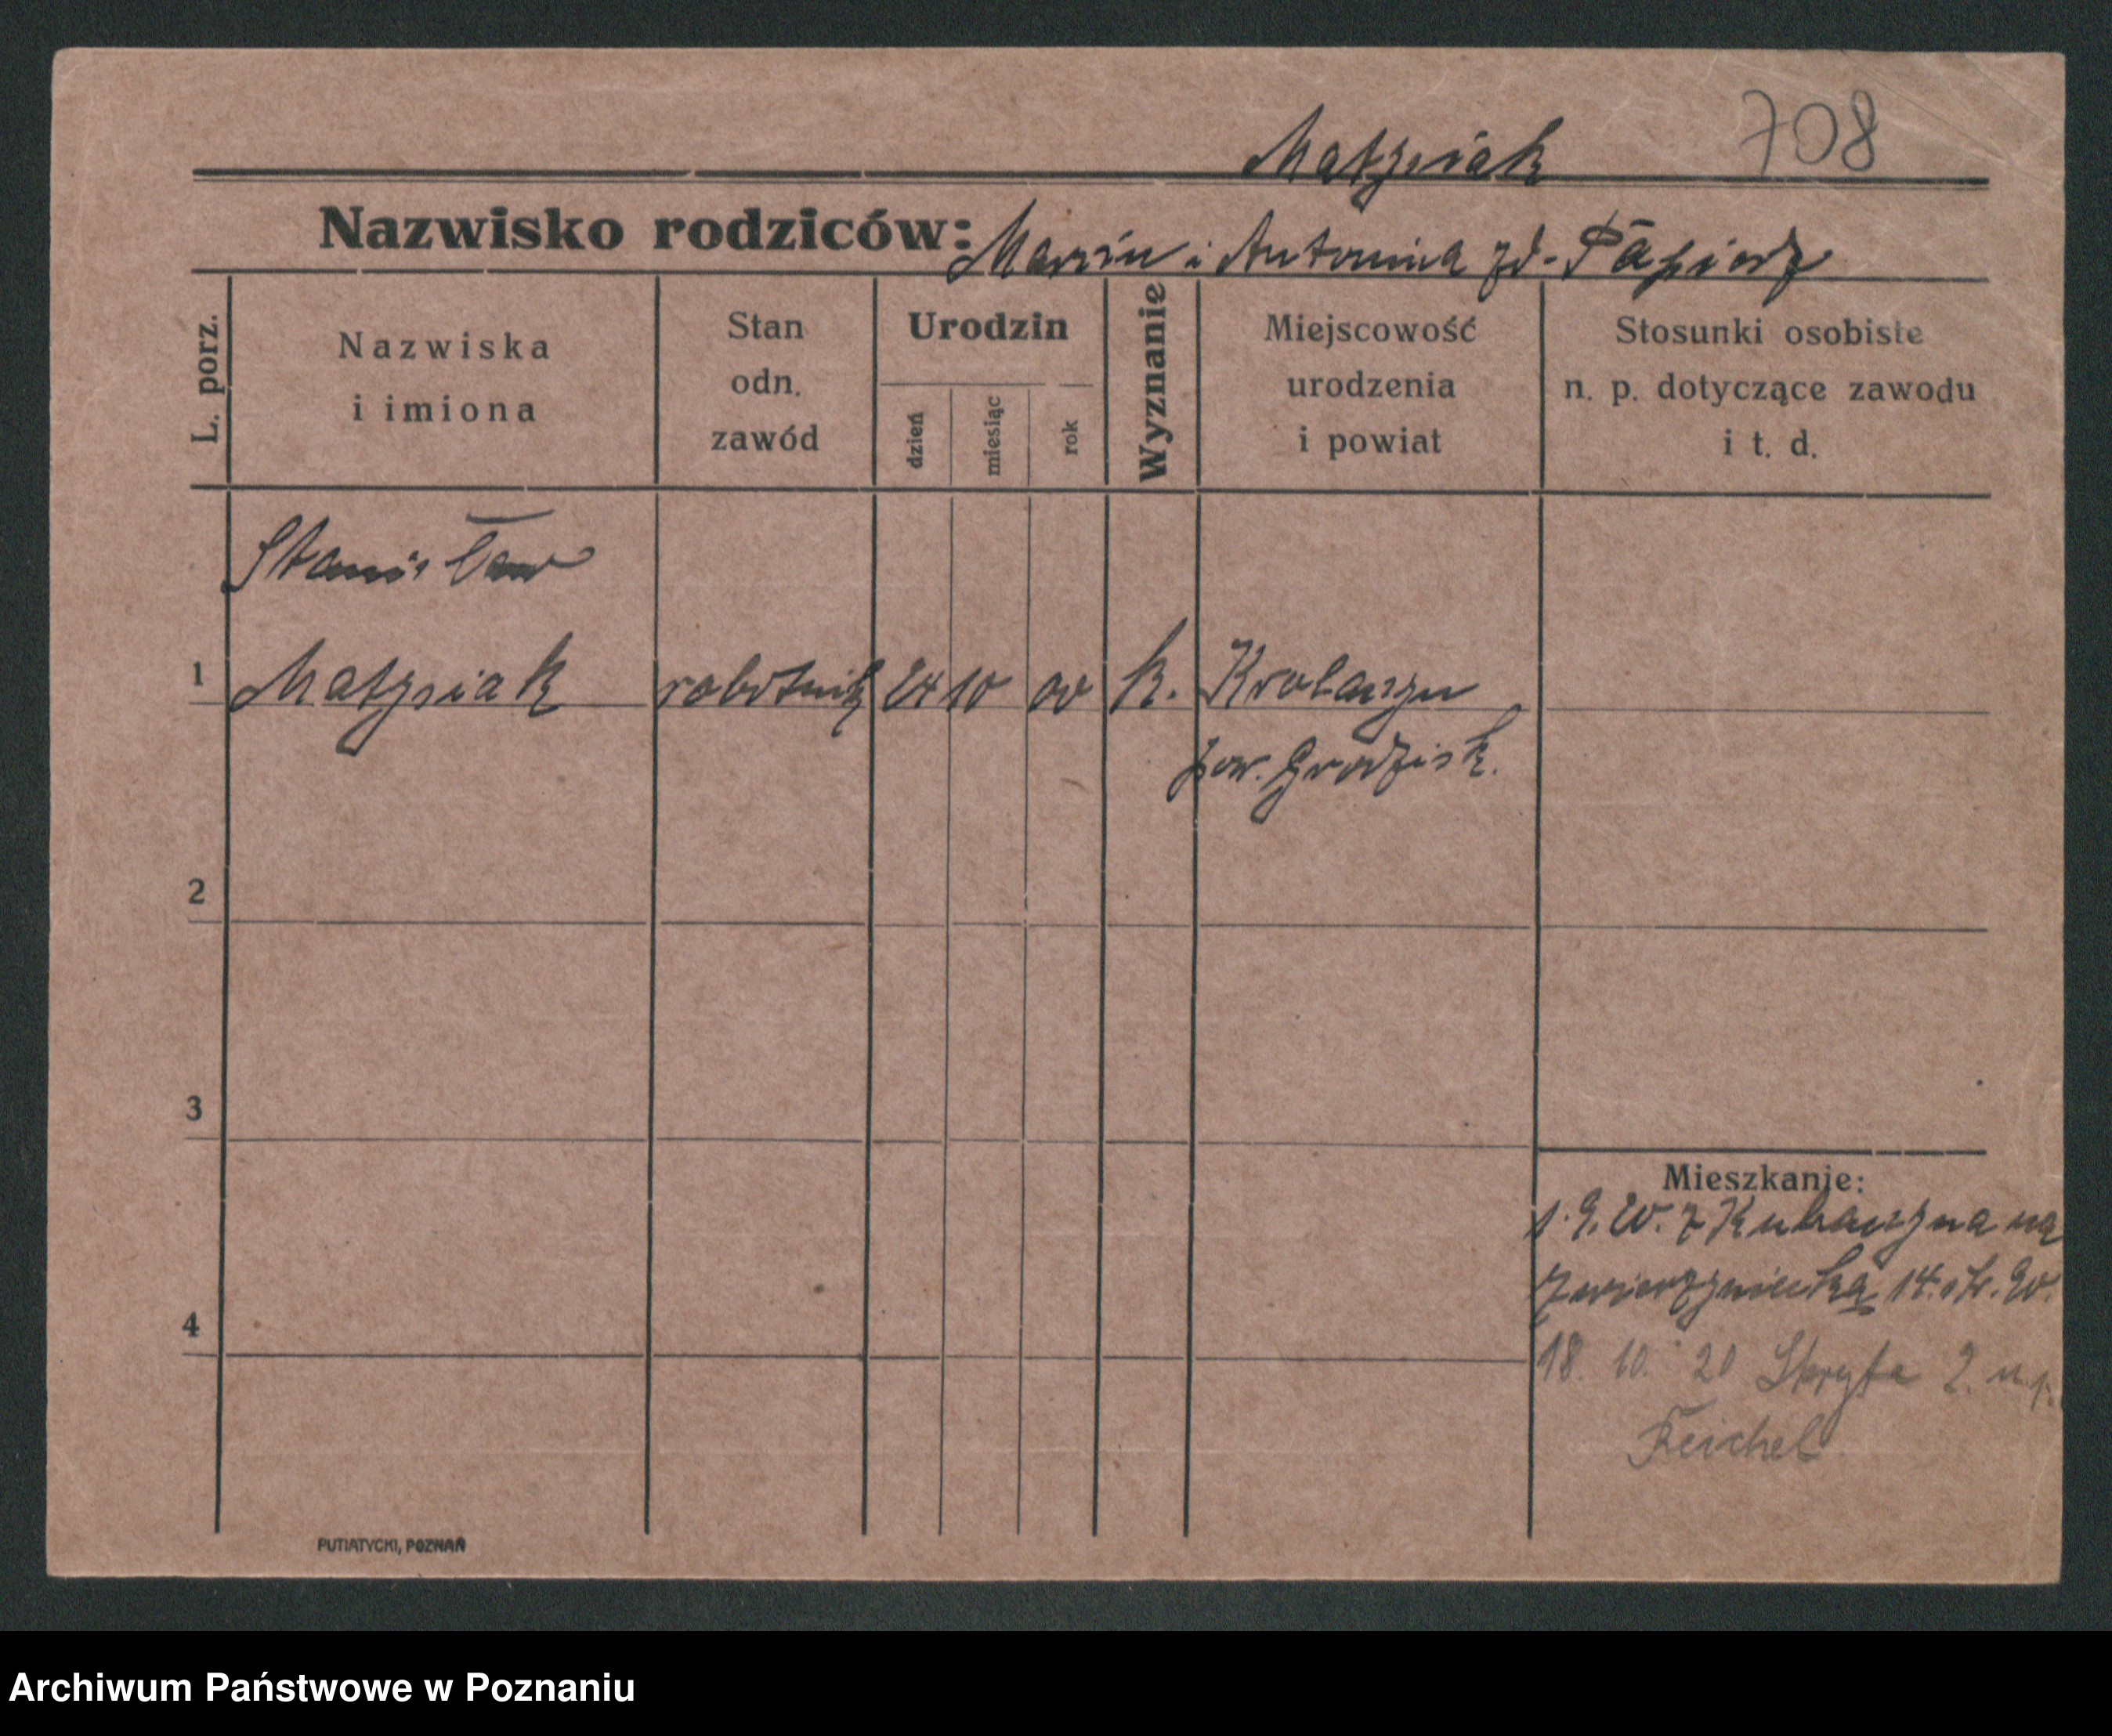 Matysiak 708
Nazwisko rodziców: Marcin i Antonina zd. Papierz
L. porz.
Nazwiska
i imiona
Stan
odn.
zawód
Urodzin
dzień
miesiąc
rok
Wyznanie
Miejscowość
urodzenia
i powiat
Stosunki osobiste
n. p. dotyczące zawodu
i t. d.
Stanisław
1 Matysiak robotnik 24 10 00 k.
pow. Grodzisk.
2
3
4
Mieszkanie:
1. 9. 20. z na
Zwierzyniecką 14.
18. 10. 20 Skryta 2.
Feichel
PUTIATYCKI, POZNAŃ
Archiwum Państwowe w Poznaniu